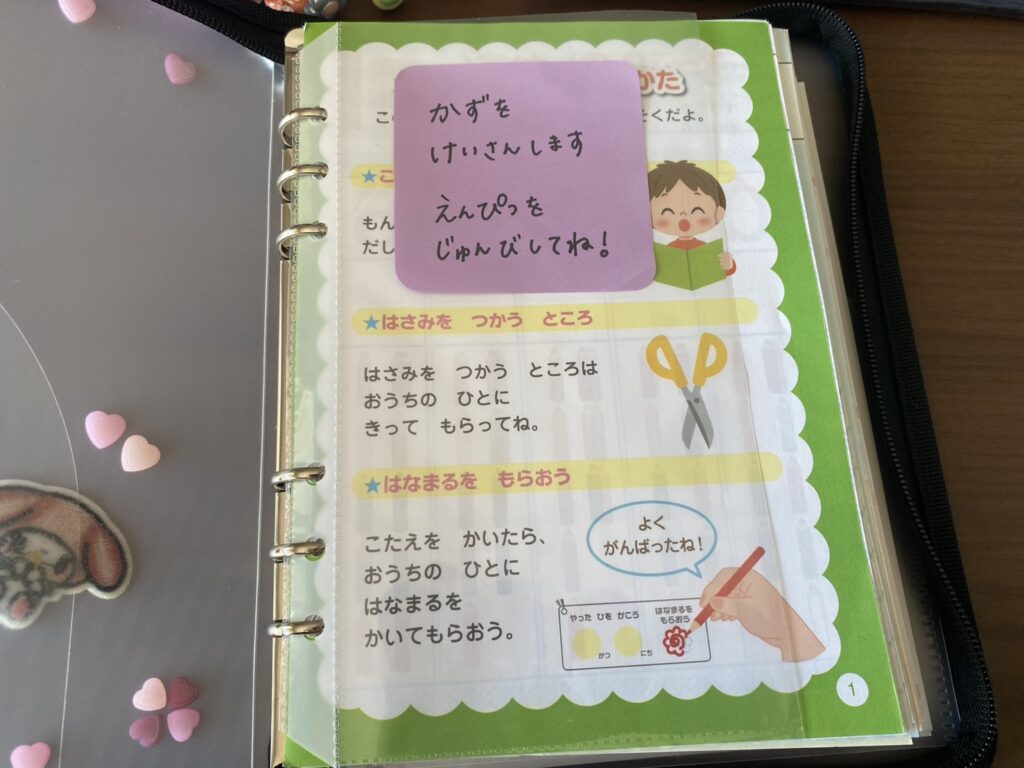 かた
こ
そくだよ。
かずを
けいさんします
えんぴつを
じゅんびしてね!
★こ
もん
だし
★はさみを つかう ところ
はさみを つかう ところは
おうちの ひとに
きって もらってね。
★はなまるを もらおう
こたえを かいたら、
おうちの ひとに
はなまるを
かいてもらおう。
よく
がんばったね!
やった ひを かこう
がつ にち
はなまるを
もらおう
1